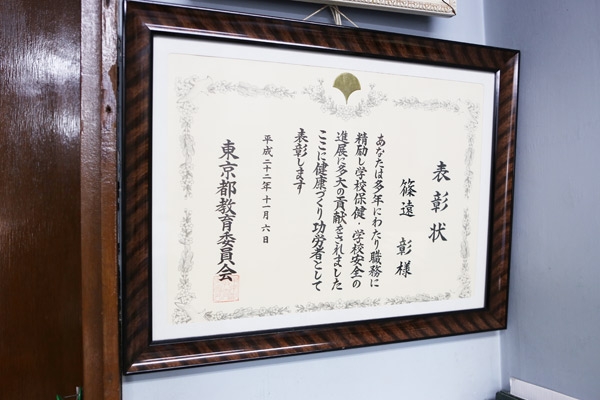 表彰状
篠遠 彰様
あなたは多年にわたり職務に
精励し学校保健・学校安全の
進展に多大の貢献をされました
ここに健康づくり功労者として
表彰します
平成二十二年十一月六日
東京都教育委員会